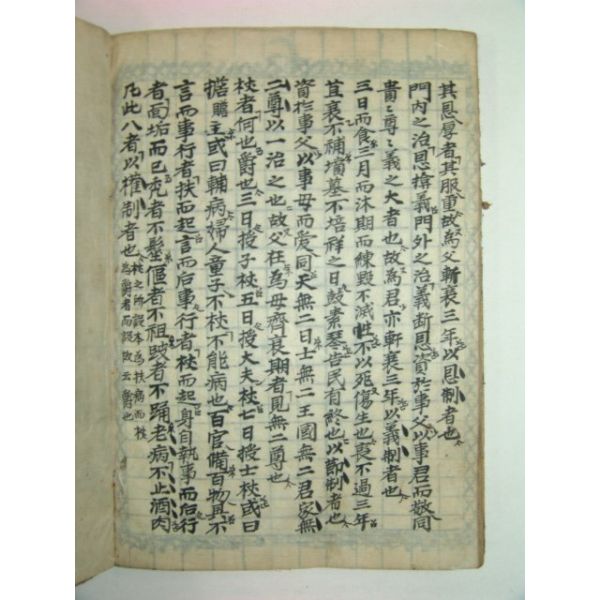 其恩厚者其服重故爲父斬衰三年以恩制者也
門內之治恩揜義門外之治義斷恩資於事父以事君而敬同
貴〻尊〻義之大者也故爲君亦斬衰三年以義制者也
三日而食三月而沐期而練毁不滅性不以死傷生也喪不過三年
苴衰不補墳墓不培祥之日鼓素琴告民有終也以節制者也
資於事父以事母而愛同天無二日土無二王國無二君家無
二尊以一治之也故父在爲母齊衰期者見無二尊也
杖者何也爵也三日授子杖五日授大夫杖七日授士杖或曰
擔贍主或曰輔病婦人童子不杖不能病也百官備百物具不
言而事行者扶而起言而后事行者杖而起身自執事而后行
者面垢而已禿者不髽傴者不袒跛者不踊老病不止酒肉
凡此八者以權制者也
杖之所設本爲扶病而杖
爲爵者而設故云爵也